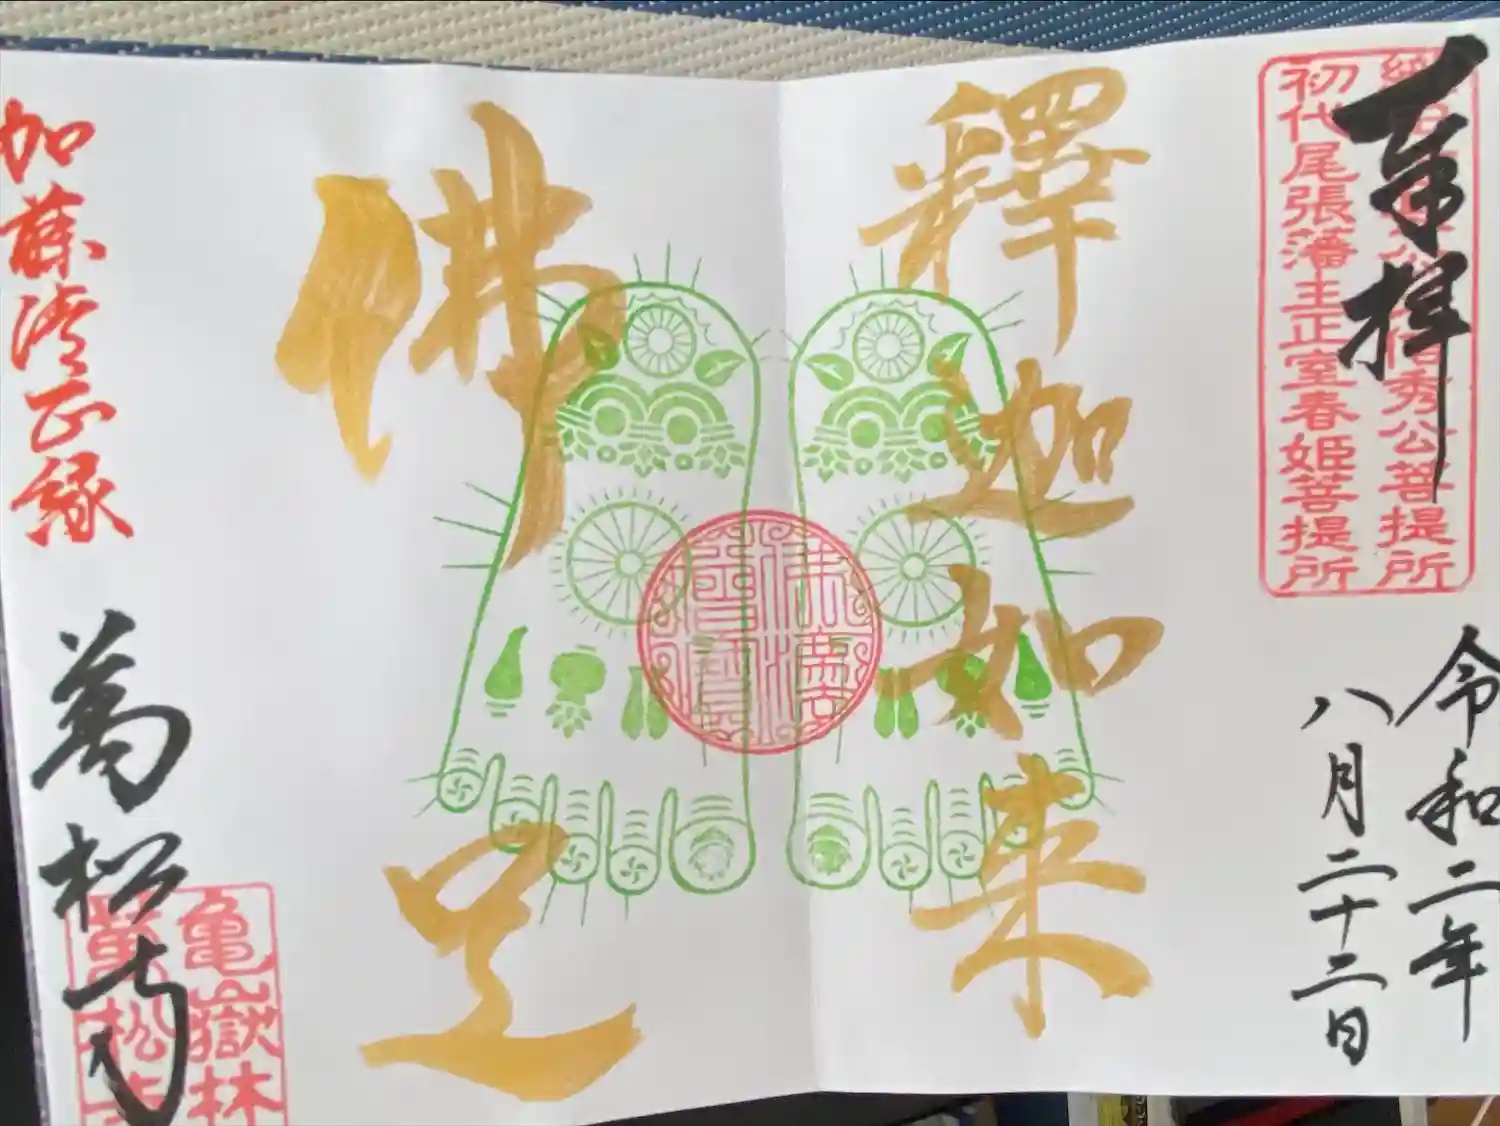 奉拝
公菩提所
初代尾張藩主正室春姫菩提所
令和二年
八月二十二日
釋迦如来
佛足
加藤清正縁
萬松寺
亀嶽林
萬松寺